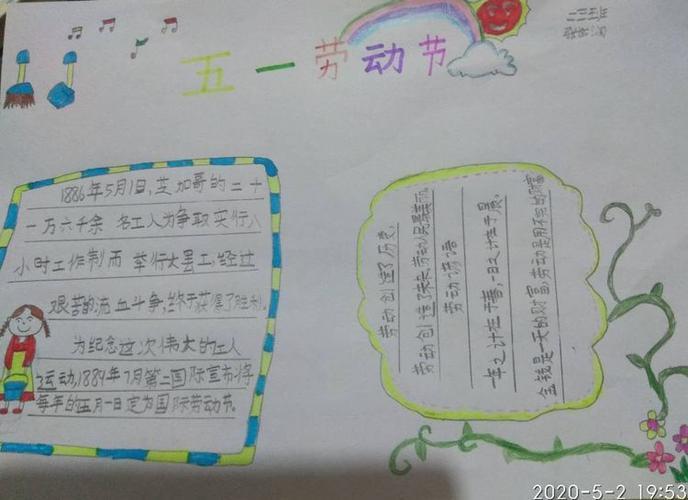 五一劳动节
1886年5月1日,芝加哥的二十
一万六千余 名工人为争取实行八
小时工作制而 举行大罢工,经过
艰苦的流血斗争,终于获得了胜利。
为纪念这次伟大的工人
运动,1889年7月第二国际宣布将
每年的五月一日定为国际劳动节。
劳动创造了历史。
劳动创造了未来,劳动人民最美丽。
劳动谚语
一年之计在于春,一日之计在于晨。
金钱是一天的财富,劳动是用不完的财富
2020-5-2 19:53